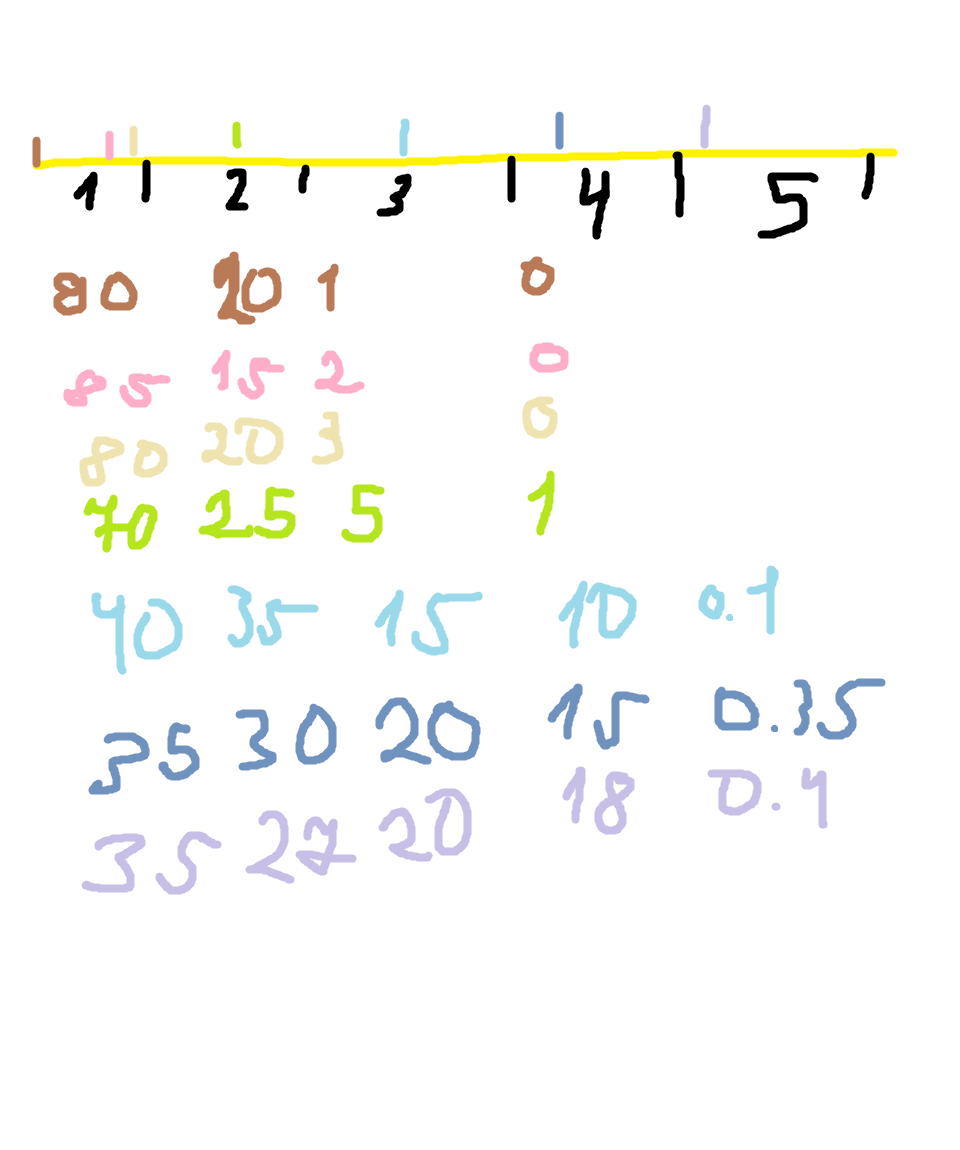 1 2 3 4 5
80 20 1 0
85 15 2 0
80 20 3 0
70 25 5 1
40 35 15 10 0.1
35 30 20 15 0.35
35 27 20 18 0.4